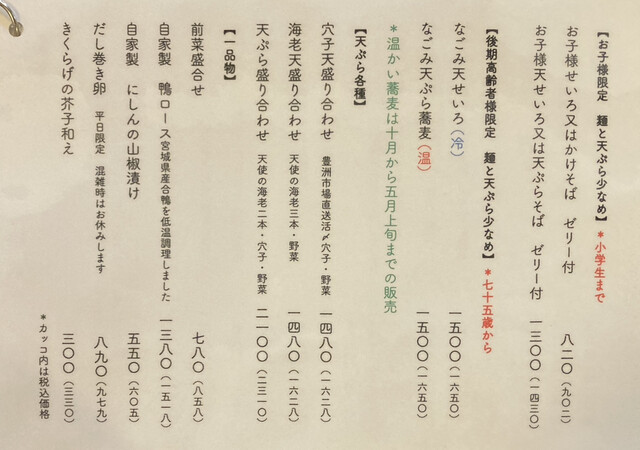 【お子様限定　麺と天ぷら少なめ】＊小学生まで
お子様せいろ又はかけそば　ゼリー付　八二〇（九〇二）
お子様天せいろ又は天ぷらそば　ゼリー付　一三〇〇（一四三〇）
【後期高齢者様限定　麺と天ぷら少なめ】＊七十五歳から
なごみ天せいろ（冷）　一五〇〇（一六五〇）
なごみ天ぷら蕎麦（温）　一五〇〇（一六五〇）
＊温かい蕎麦は十月から五月上旬までの販売
【天ぷら各種】
穴子天盛り合わせ　豊洲市場直送活〆穴子・野菜　一四八〇（一六二八）
海老天盛り合わせ　天使の海老三本・野菜　一四八〇（一六二八）
天ぷら盛り合わせ　天使の海老二本・穴子・野菜　二一〇〇（二三一〇）
【一品物】
前菜盛合せ　七八〇（八五八）
自家製　鴨ロース　宮城県産合鴨を低温調理しました　一三八〇（一五一八）
自家製　にしんの山椒漬け　五五〇（六〇五）
だし巻き卵　平日限定　混雑時はお休みします　八九〇（九七九）
きくらげの芥子和え　三〇〇（三三〇）
＊カッコ内は税込価格